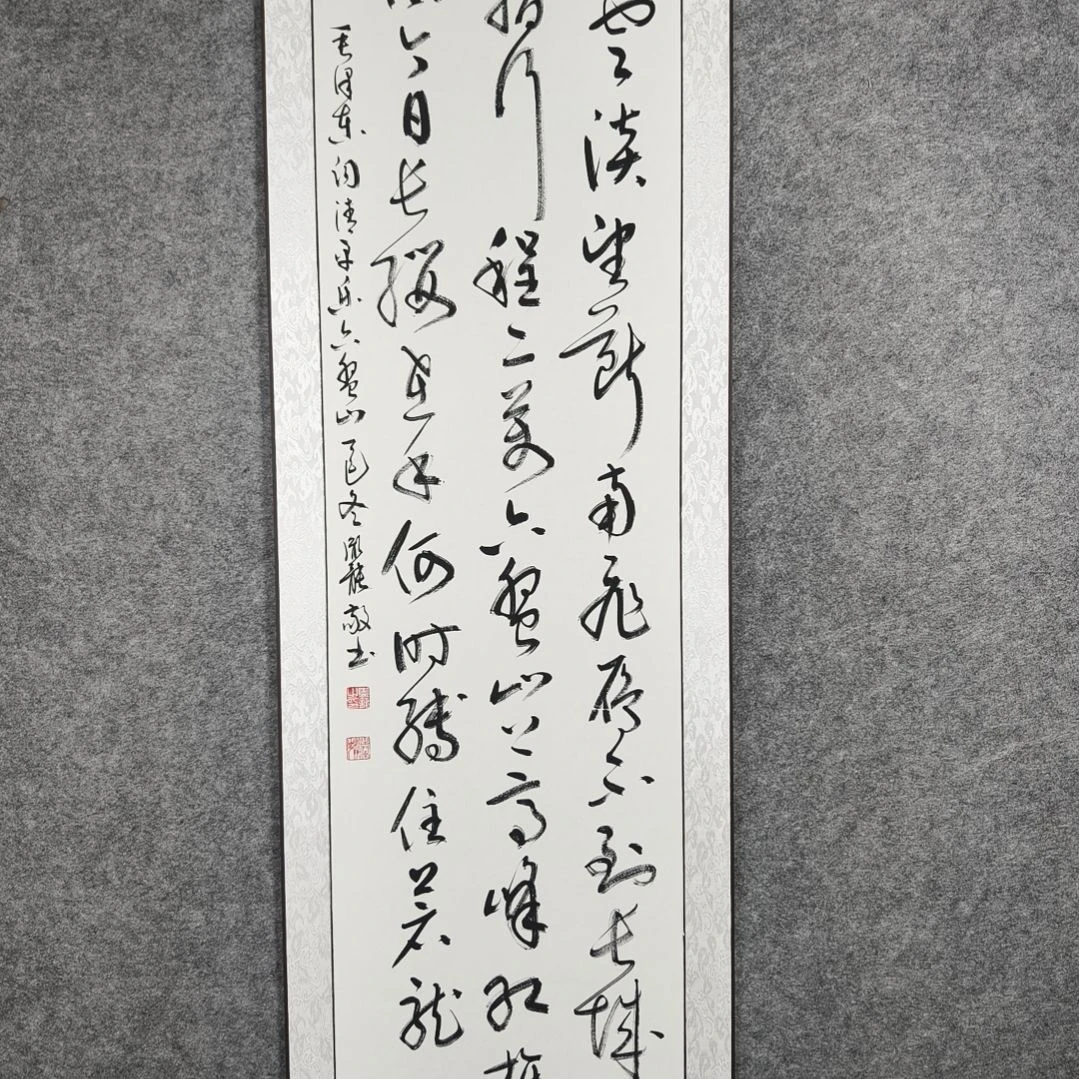 雲淡望断南飛雁不到长城
指行程二萬六盘山上高峰红旗
今日长缨在手何时缚住苍龍
毛泽东词清平乐六盘山乙巳冬敬书